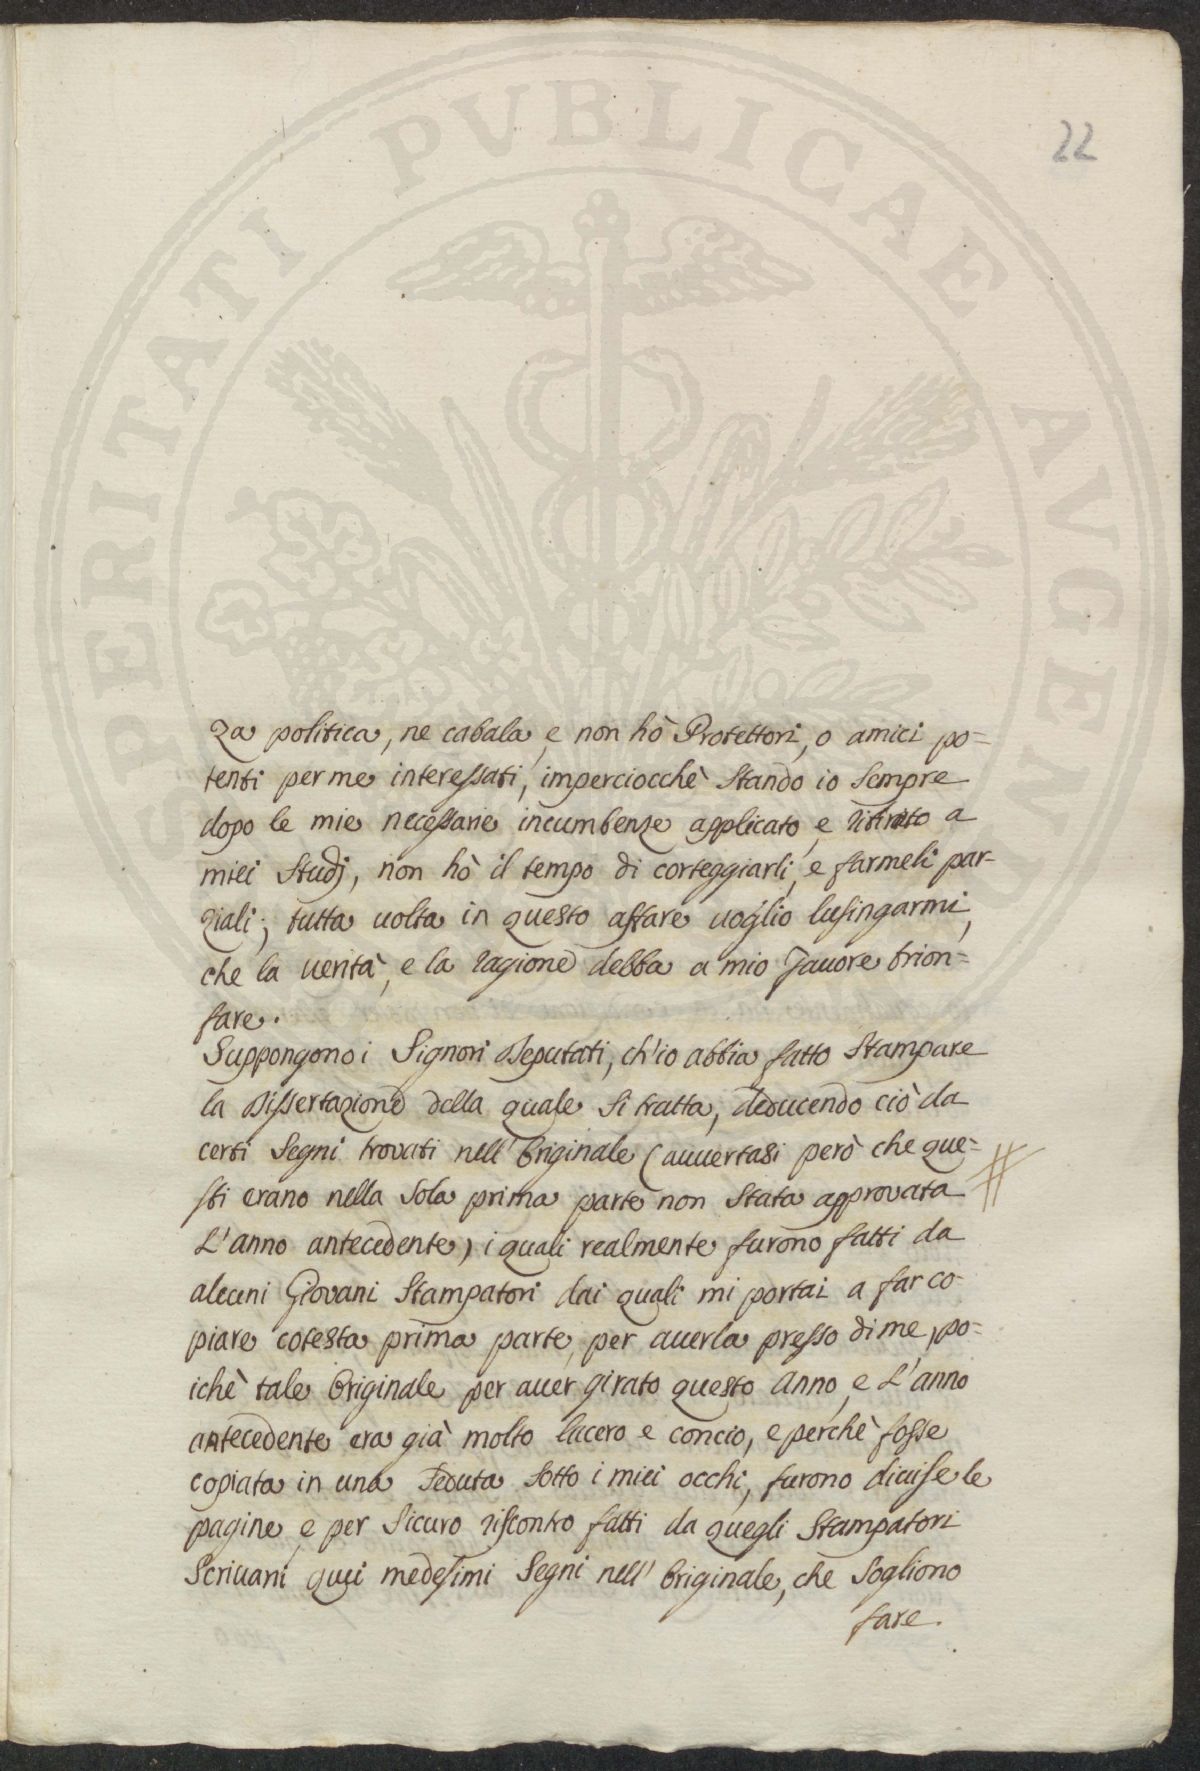 PERITATI PVBLICAE AVGEN
22
za politica, ne cabala, e non hò Protettori, o amici po=
tenti per me interessati, imperciocchè stando io sempre
dopo le mie necessarie incumbenze applicato, e ritirato a
miei studj, non hò il tempo di corteggiarli, e farmeli par-
ziali; tutta uolta in questo affare uoglio lusingarmi,
che la uerità, e la ragione debba a mio fauore trion=
fare.
Suppongono i Signori Deputati, ch'io abbia fatto stampare
la Dissertazione della quale si tratta, deducendo ciò da
certi segni trovati nell'Originale (auuertasi però che que=
sti erano nella sola prima parte non stata approvata
L'anno antecedente) i quali realmente furono fatti da
alcuni Giovani Stampatori dai quali mi portai a far co-
piare cotesta prima parte, per auerla presso di me, po=
ichè tale Originale per auer girato questo Anno, e L'anno
antecedente era già molto lacero e concio, e perchè fosse
copiata in una seduta sotto i miei occhi, furono diuise le
pagine, e per sicuro riscontro fatti da quegli Stampatori
Scriuani quei medesimi segni nell'Originale, che sogliono
fare.
#